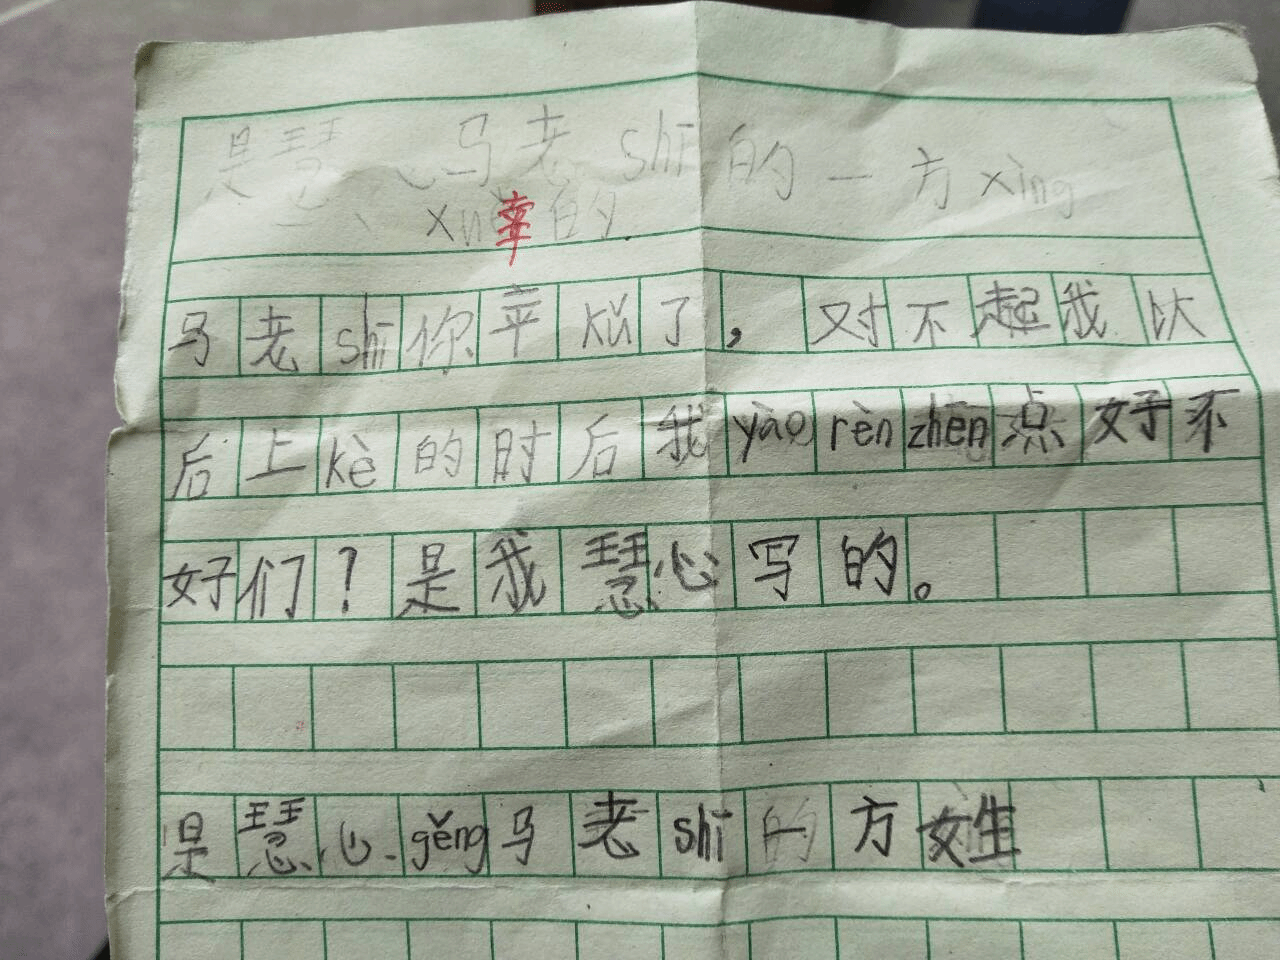 是慧心马老shī的一方xìng
xu 的
幸
马老shī你辛kǔ了，对不起我以
后上kè的时后我yào rèn zhēn点好不
好们？是我慧心写的。
是慧心gěng马老shī的一方姓